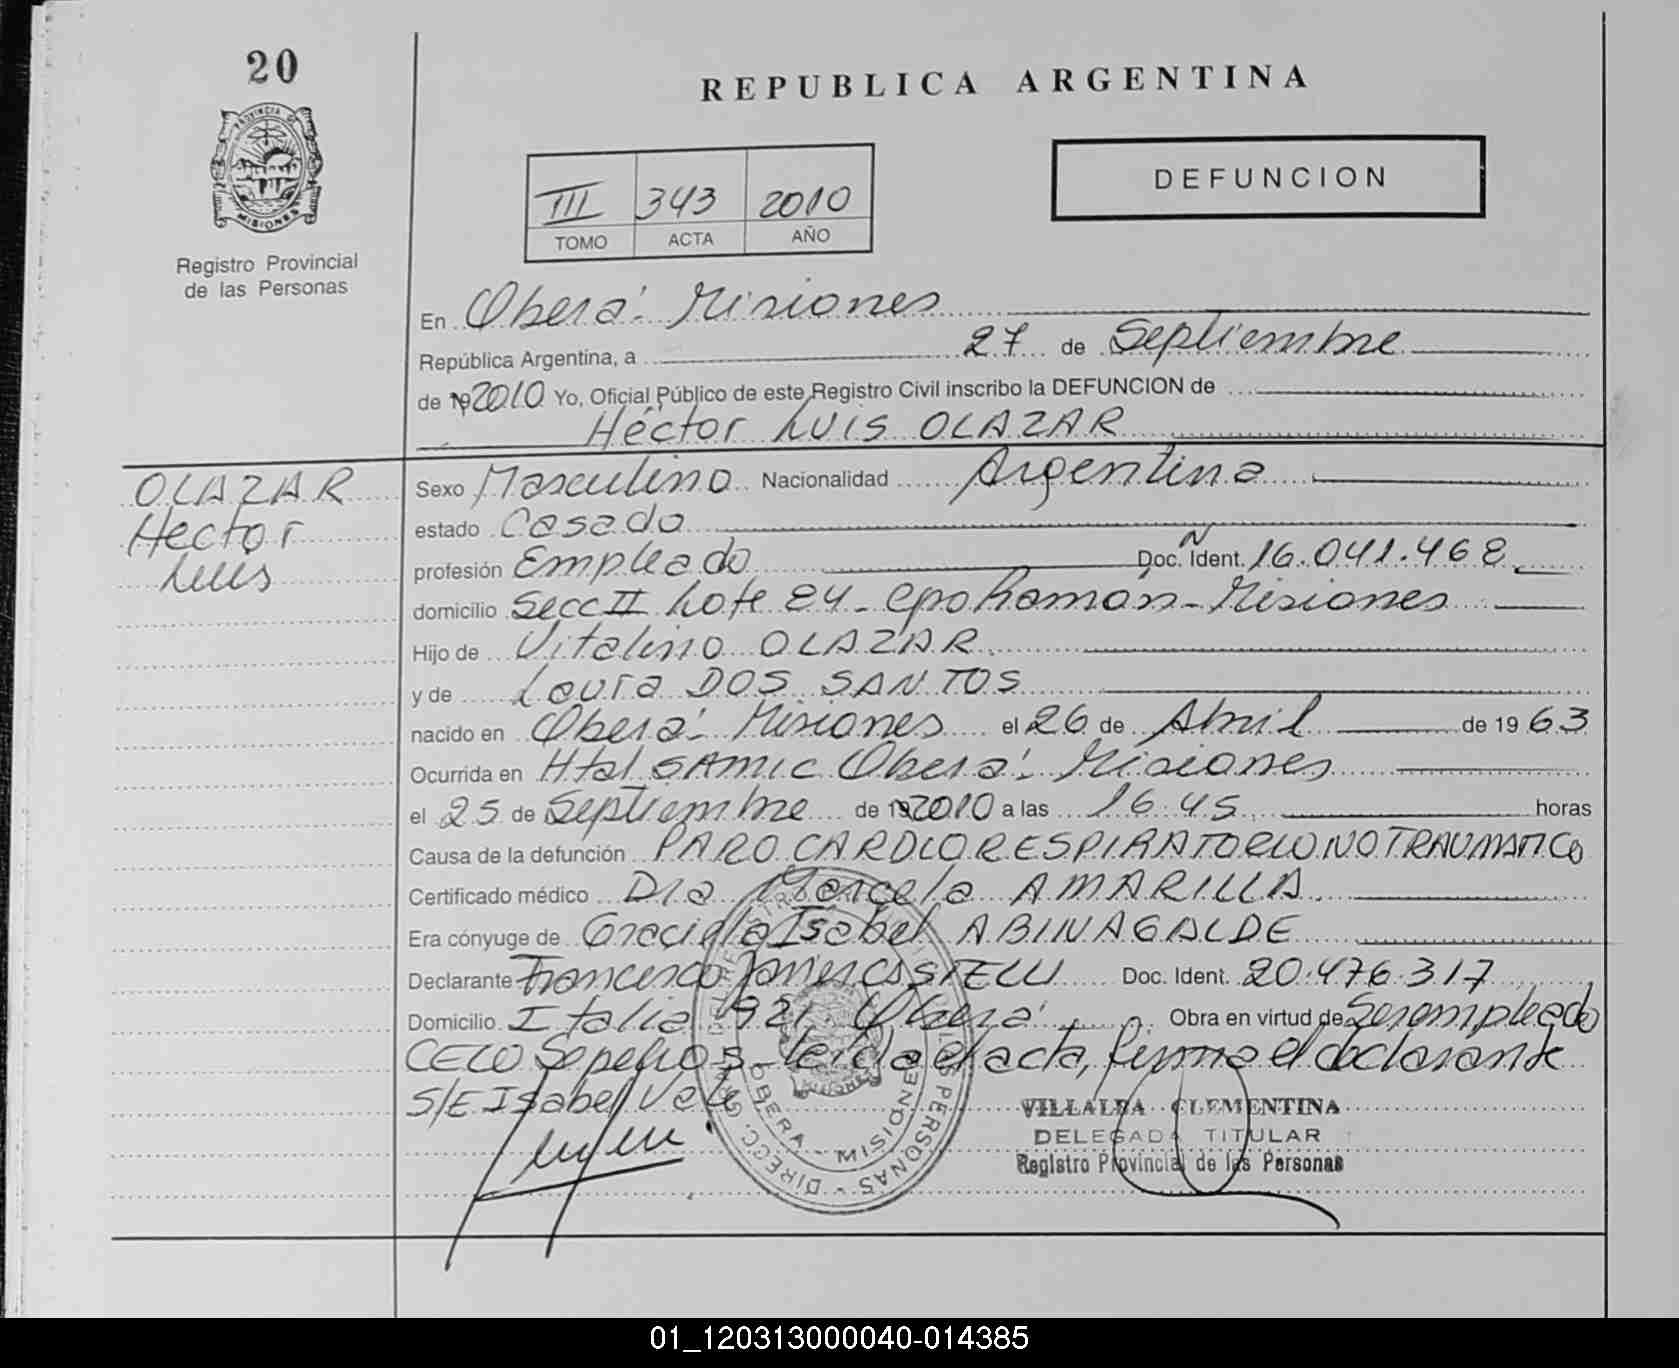 20
REPUBLICA ARGENTINA
PROVINCIA DE
MISIONES
Registro Provincial
de las Personas
III 343 2010
TOMO ACTA AÑO
DEFUNCION
En Oberá. Misiones
República Argentina, a 27 de Septiembre
de 19 2010 Yo, Oficial Público de este Registro Civil inscribo la DEFUNCION de
Héctor Luis OLAZAR
OLAZAR
Hector
Luis
Sexo Masculino Nacionalidad Argentina
estado Casado
profesión Empleado Doc. N Ident. 16.041.468
domicilio Secc II Lote 24 - Cpo Ramón - Misiones
Hijo de Vitalino OLAZAR
y de Laura DOS SANTOS
nacido en Oberá - Misiones el 26 de Abril de 19 63
Ocurrida en Htal SAMIC Oberá - Misiones
el 25 de Septiembre de 19 2010 a las 16.45 horas
Causa de la defunción PARO CARDIORESPIRATORIO NO TRAUMATICO
Certificado médico Dra Marcela AMARILLA
Era cónyuge de Graciela Isabel ABINAGALDE
Declarante Francisco Javier CASTELLI Doc. Ident. 20.476.317
Domicilio Italia 921. Oberá Obra en virtud de Ser empleado
CELO Sepelios - Leida el acta, firma el declarante
S/E Isabel
VILLALBA CLEMENTINA
DELEGADA TITULAR
Registro Provincial de las Personas
OBERA - MISIONES
01_120313000040-014385